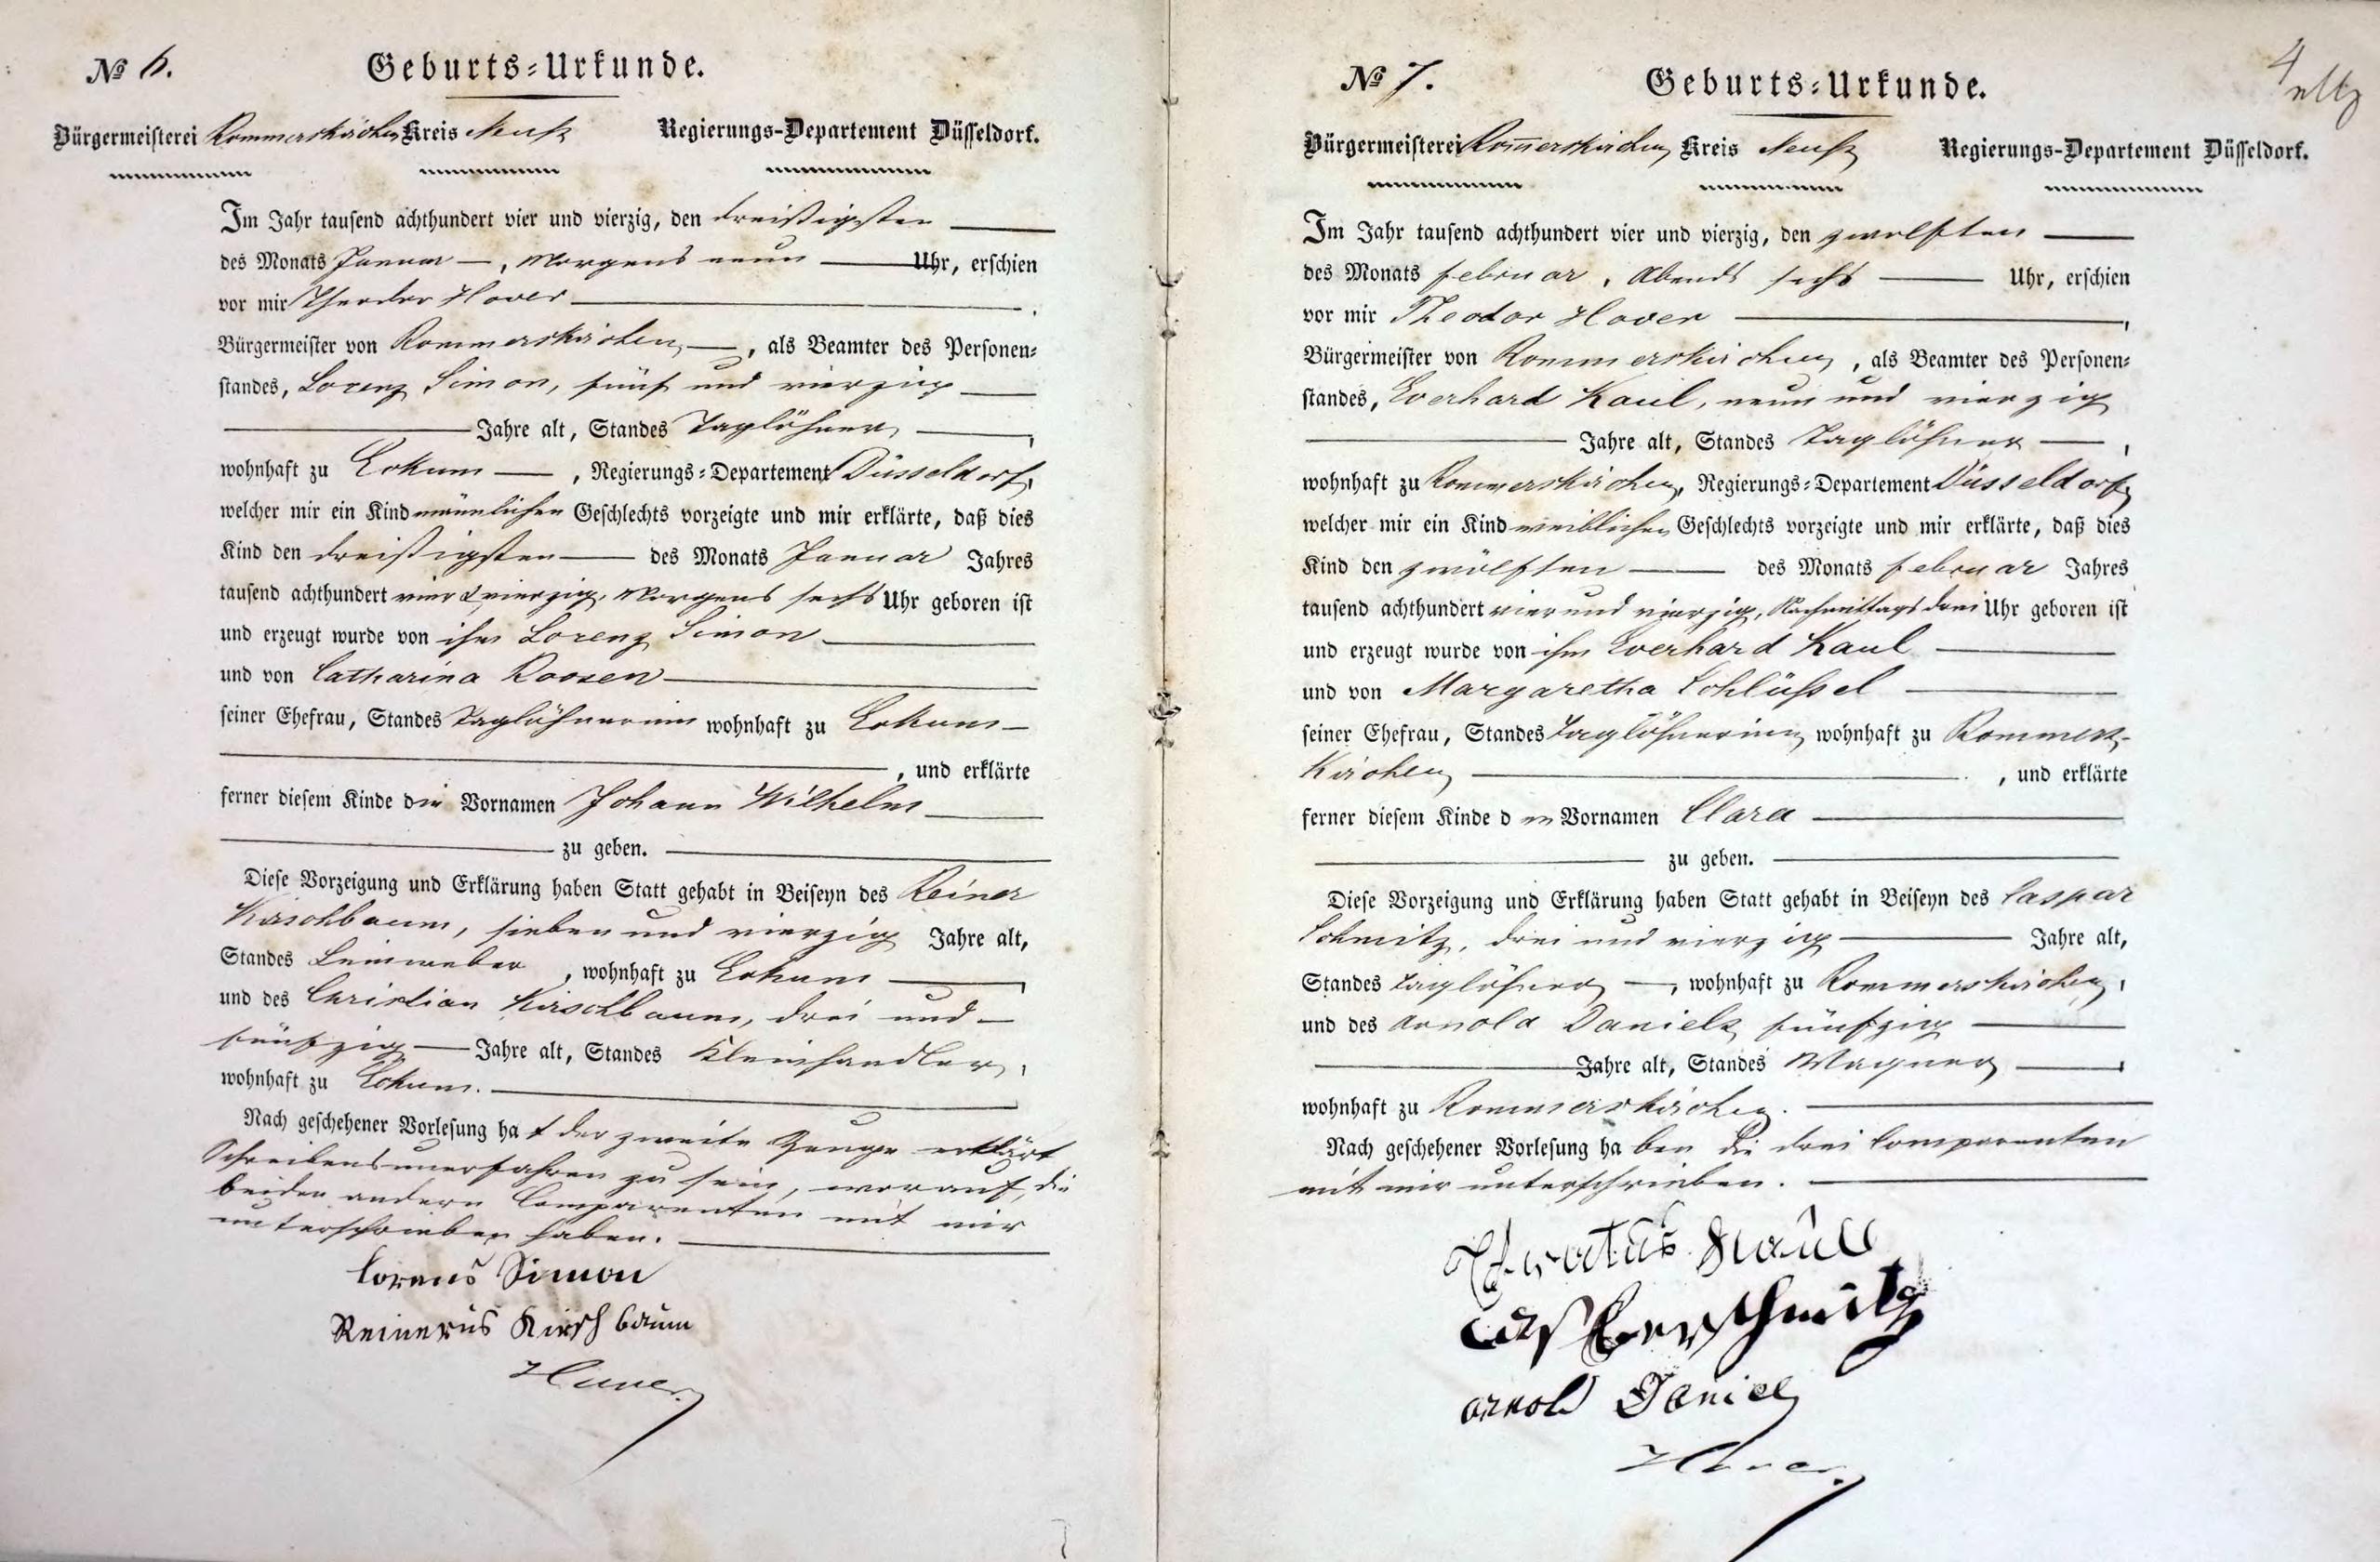 № 6.
Geburts-Urkunde.
Bürgermeisterei Rommerskirchen Kreis Neuß Regierungs-Departement Düsseldorf.
Im Jahr tausend achthundert vier und vierzig, den dreißigsten
des Monats Januar, Morgens neun Uhr, erschien
vor mir Theodor Hover
Bürgermeister von Rommerskirchen, als Beamter des Personen-
standes, Lorenz Simon, fünf und vierzig
Jahre alt, Standes Taglöhner,
wohnhaft zu Eckum, Regierungs-Departement Düsseldorf,
welcher mir ein Kind männlichen Geschlechts vorzeigte und mir erklärte, daß dies
Kind den dreißigsten des Monats Januar Jahres
tausend achthundert vier & vierzig, Morgens sechs Uhr geboren ist
und erzeugt wurde von ihm Lorenz Simon
und von Catharina Roosen
seiner Ehefrau, Standes Taglöhnerinn wohnhaft zu Eckum
, und erklärte
ferner diesem Kinde die Vornamen Johann Wilhelm
zu geben.
Diese Vorzeigung und Erklärung haben Statt gehabt in Beiseyn des Reiner
Kirschbaum, sieben und vierzig Jahre alt,
Standes Leinweber, wohnhaft zu Eckum,
und des Christian Kirschbaum, drei und
fünfzig Jahre alt, Standes Kleinhandler,
wohnhaft zu Eckum.
Nach geschehener Vorlesung hat der zweite Zeuge erklärt
Schreibensunerfahren zu sein, worauf die
beiden andern Comparenten mit mir
unterschrieben haben.
Lorens Simon
Reinerus Kirschbaum
Hover
№ 7.
Geburts-Urkunde.
4
Bürgermeisterei Rommerskirchen Kreis Neuß Regierungs-Departement Düsseldorf.
Im Jahr tausend achthundert vier und vierzig, den zwölften
des Monats Februar, Abends sechs Uhr, erschien
vor mir Theodor Hover,
Bürgermeister von Rommerskirchen, als Beamter des Personen-
standes, Everhard Kaul, neun und vierzig
Jahre alt, Standes Taglöhner,
wohnhaft zu Rommerskirchen, Regierungs-Departement Düsseldorf,
welcher mir ein Kind weiblichen Geschlechts vorzeigte und mir erklärte, daß dies
Kind den zwölften des Monats Februar Jahres
tausend achthundert vier und vierzig, Nachmittags drei Uhr geboren ist
und erzeugt wurde von ihm Everhard Kaul
und von Margaretha Schlüssel
seiner Ehefrau, Standes Taglöhnerinn, wohnhaft zu Rommers-
kirchen, und erklärte
ferner diesem Kinde den Vornamen Clara
zu geben.
Diese Vorzeigung und Erklärung haben Statt gehabt in Beiseyn des Caspar
Schmitz, drei und vierzig Jahre alt,
Standes Taglöhner, wohnhaft zu Rommerskirchen,
und des Arnold Daniels, fünfzig
Jahre alt, Standes Wagner,
wohnhaft zu Rommerskirchen.
Nach geschehener Vorlesung haben die drei Comparenten
mit mir unterschrieben.
Kaull
Casper schmitz
arnold Daniels
Hover